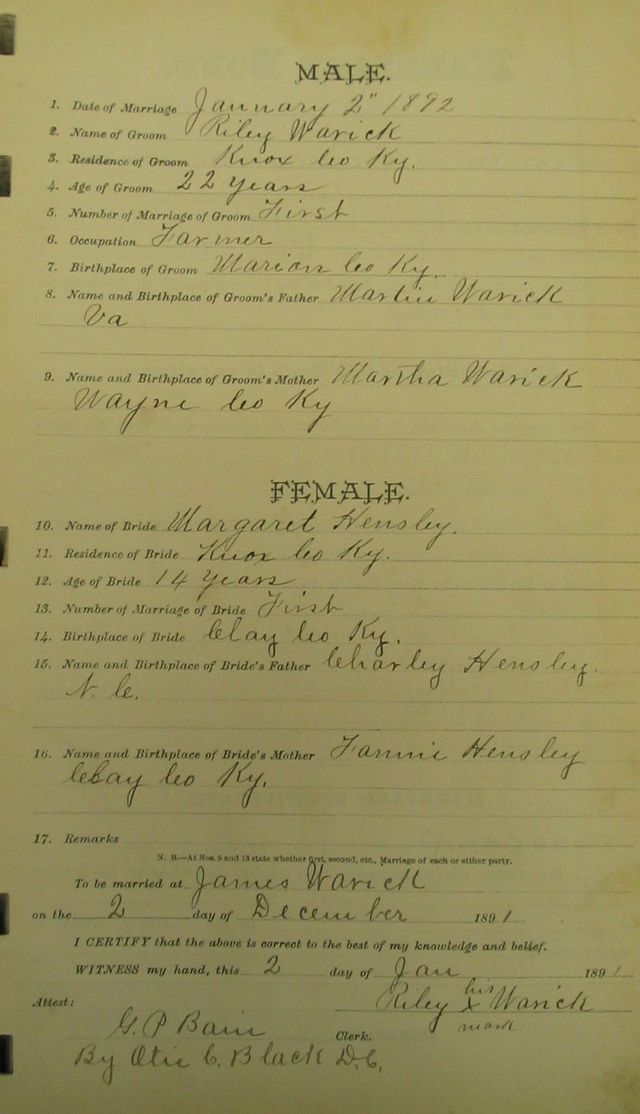 MALE.
1. Date of Marriage January 2" 1892
2. Name of Groom Riley Warick
3. Residence of Groom Knox Co Ky.
4. Age of Groom 22 years
5. Number of Marriage of Groom First
6. Occupation Farmer
7. Birthplace of Groom Marion Co Ky.
8. Name and Birthplace of Groom's Father Martin Warick
Va
9. Name and Birthplace of Groom's Mother Martha Warick
Wayne Co Ky
FEMALE.
10. Name of Bride Margaret Hensley.
11. Residence of Bride Knox Co Ky.
12. Age of Bride 14 years
13. Number of Marriage of Bride First
14. Birthplace of Bride Clay Co Ky.
15. Name and Birthplace of Bride's Father Charley Hensley.
N. C.
16. Name and Birthplace of Bride's Mother Fannie Hensley
Clay Co Ky.
17. Remarks
N. B.—At Nos. 5 and 13 state whether first, second, etc., Marriage of each or either party.
To be married at James Warick
on the 2 day of December 1891
I CERTIFY that the above is correct to the best of my knowledge and belief.
WITNESS my hand, this 2 day of Jan 1891
his
Riley x Warick
mark
Attest:
G. P Bain Clerk.
By Otis C. Black D.C.